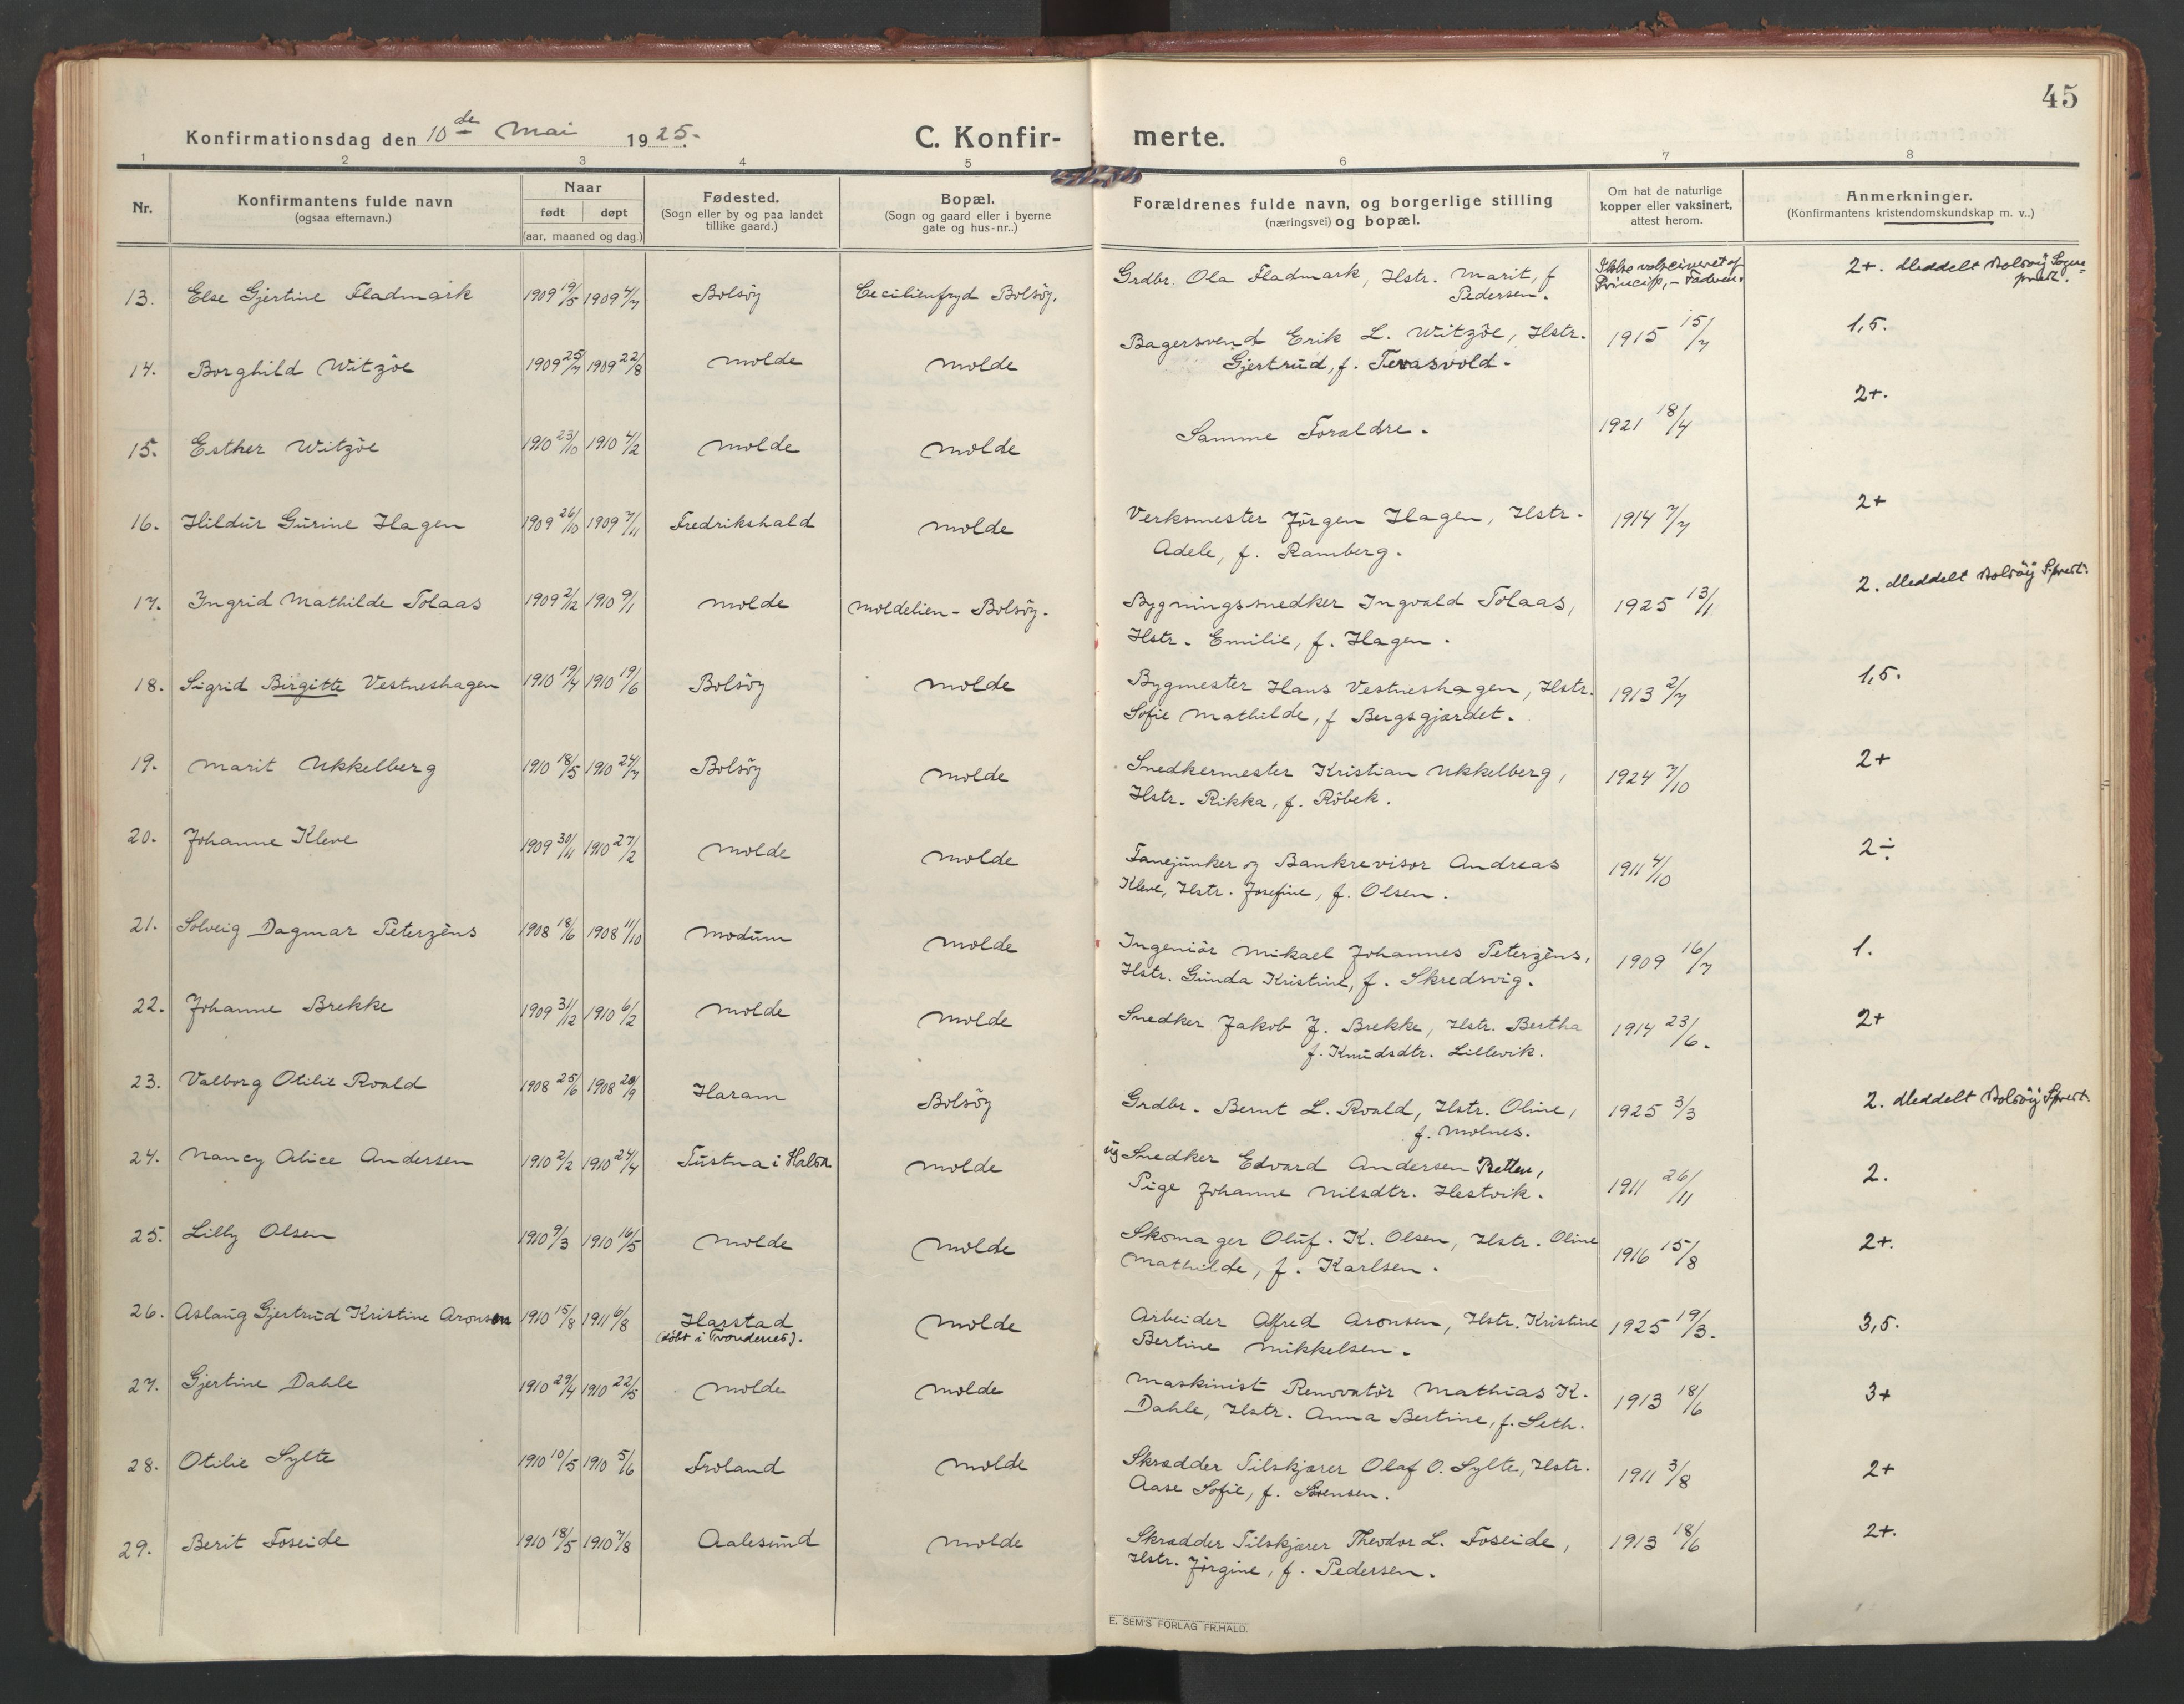 45
Konfirmationsdag den 10de Mai 1925.
C. Konfir- merte.
1 2 3 4 5 6 7 8
Nr.
Konfirmantens fulde navn
(ogsaa efternavn.)
Naar
født døpt
(aar, maaned og dag.)
Fødested.
(Sogn eller by og paa landet
tillike gaard.)
Bopæl.
(Sogn og gaard eller i byerne
gate og hus-nr..)
Forældrenes fulde navn, og borgerlige stilling
(næringsvei) og bopæl.
Om hat de naturlige
kopper eller vaksinert,
attest herom.
Anmerkninger.
(Konfirmantens kristendomskundskap m. v..)
13. Else Gjertine Fladmark 1909 19/5 1909 4/7 Bolsöy Cecilienfryd Bolsöy. Grdbr. Ola Fladmark, Hstr. Marit, f Ikke vakcineret af 2+. Meddelt Bolsöy Sogne-
Pedersen. Princip, - Faderen. prest.
14. Borghild Witzöe 1909 25/7 1909 22/8 Molde Molde Bagersvend Erik L. Witzöe, Hstr. 1915 15/7 1,5.
Gjertrud, f. Tevasvold.
15. Esther Witzöe 1910 23/10 1910 4/2 Molde Molde Samme Forældre. 1921 18/4 2+.
16. Hildur Gurine Hagen 1909 26/10 1909 7/11 Fredrikshald Molde Verksmester Jörgen Hagen, Hstr. 1914 7/7 2+
Adele, f. Ramberg.
17. Ingrid Mathilde Tolaas 1909 2/12 1910 9/1 Molde Moldelien - Bolsöy. Bygningssnedker Ingvald Tolaas, 1925 13/1 2. Meddelt Bolsöy S.prest.
Hstr. Emilie, f. Hagen.
18. Sigrid Birgitte Vestneshagen 1910 19/4 1910 19/6 Bolsöy Molde Bygmester Hans Vestneshagen, Hstr. 1913 2/7 1,5.
Sofie Mathilde, f Bergsgjærdet.
19. Marit Ukkelberg 1910 18/5 1910 24/7 Bolsöy Molde Snedkermester Kristian Ukkelberg, 1924 7/10 2+
Hstr. Rikka, f. Röbek.
20. Johanne Kleve 1909 30/11 1910 27/2 Molde Molde Fanejunker og Bankrevisor Andreas 1911 4/10 2÷
Kleve, Hstr. Josefine, f. Olsen.
21. Solveig Dagmar Peterzéns 1908 18/6 1908 11/10 Modum Molde Ingeniör Mikael Johannes Peterzéns, 1909 16/7 1.
Hstr. Gunda Kristine, f. Skredsvig.
22. Johanne Brekke 1909 31/12 1910 6/2 Molde Molde Snedker Jakob J. Brekke, Hstr. Bertha 1914 23/6. 2+
f. Knudsdtr. Lillevik.
23. Valborg Otilie Roald 1908 25/6 1908 20/9 Haram Bolsöy Grdbr. Bernt L. Roald, Hstr. Oline, 1925 3/3 2. Meddelt Bolsöy S.prest.
f. Molnes.
24. Nancy Alice Andersen 1910 2/2 1910 24/4 Tustna i Halsa Molde ug Snedker Edvard Andersen Retten, 1911 26/11 2.
Pige Johanne Nilsdtr. Hestvik.
25. Lilly Olsen 1910 9/3 1910 16/5 Molde Molde Skomager Oluf. K. Olsen, Hstr. Oline 1916 15/8 2+.
Mathilde, f. Karlsen.
26. Aslaug Gjertrud Kristine Aronsen 1910 15/8 1911 6/8 Harstad Molde Arbeider Alfred Aronsen, Hstr. Kristine 1925 19/3. 3,5.
(döbt i Trondenes). Bertine Mikkelsen.
27. Gjertine Dahle 1910 29/4 1910 22/5 Molde Molde Maskinist Renovatör Mathias K. 1913 18/6 3+
Dahle, Hstr. Anna Bertine, f. Seth.
28. Otilie Sylte 1910 10/5 1910 5/6 Froland Molde Skrædder Tilskjærer Olaf O. Sylte, Hstr. 1911 3/8 2+
Aase Sofie, f. Sörensen.
29. Berit Foseide 1910 18/5 1910 7/8 Aalesund Molde Skrædder Tilskjærer Theodor L. Foseide, 1913 18/6 2+.
Hstr. Jörgine, f. Pedersen.
E. SEM'S FORLAG FR.HALD.